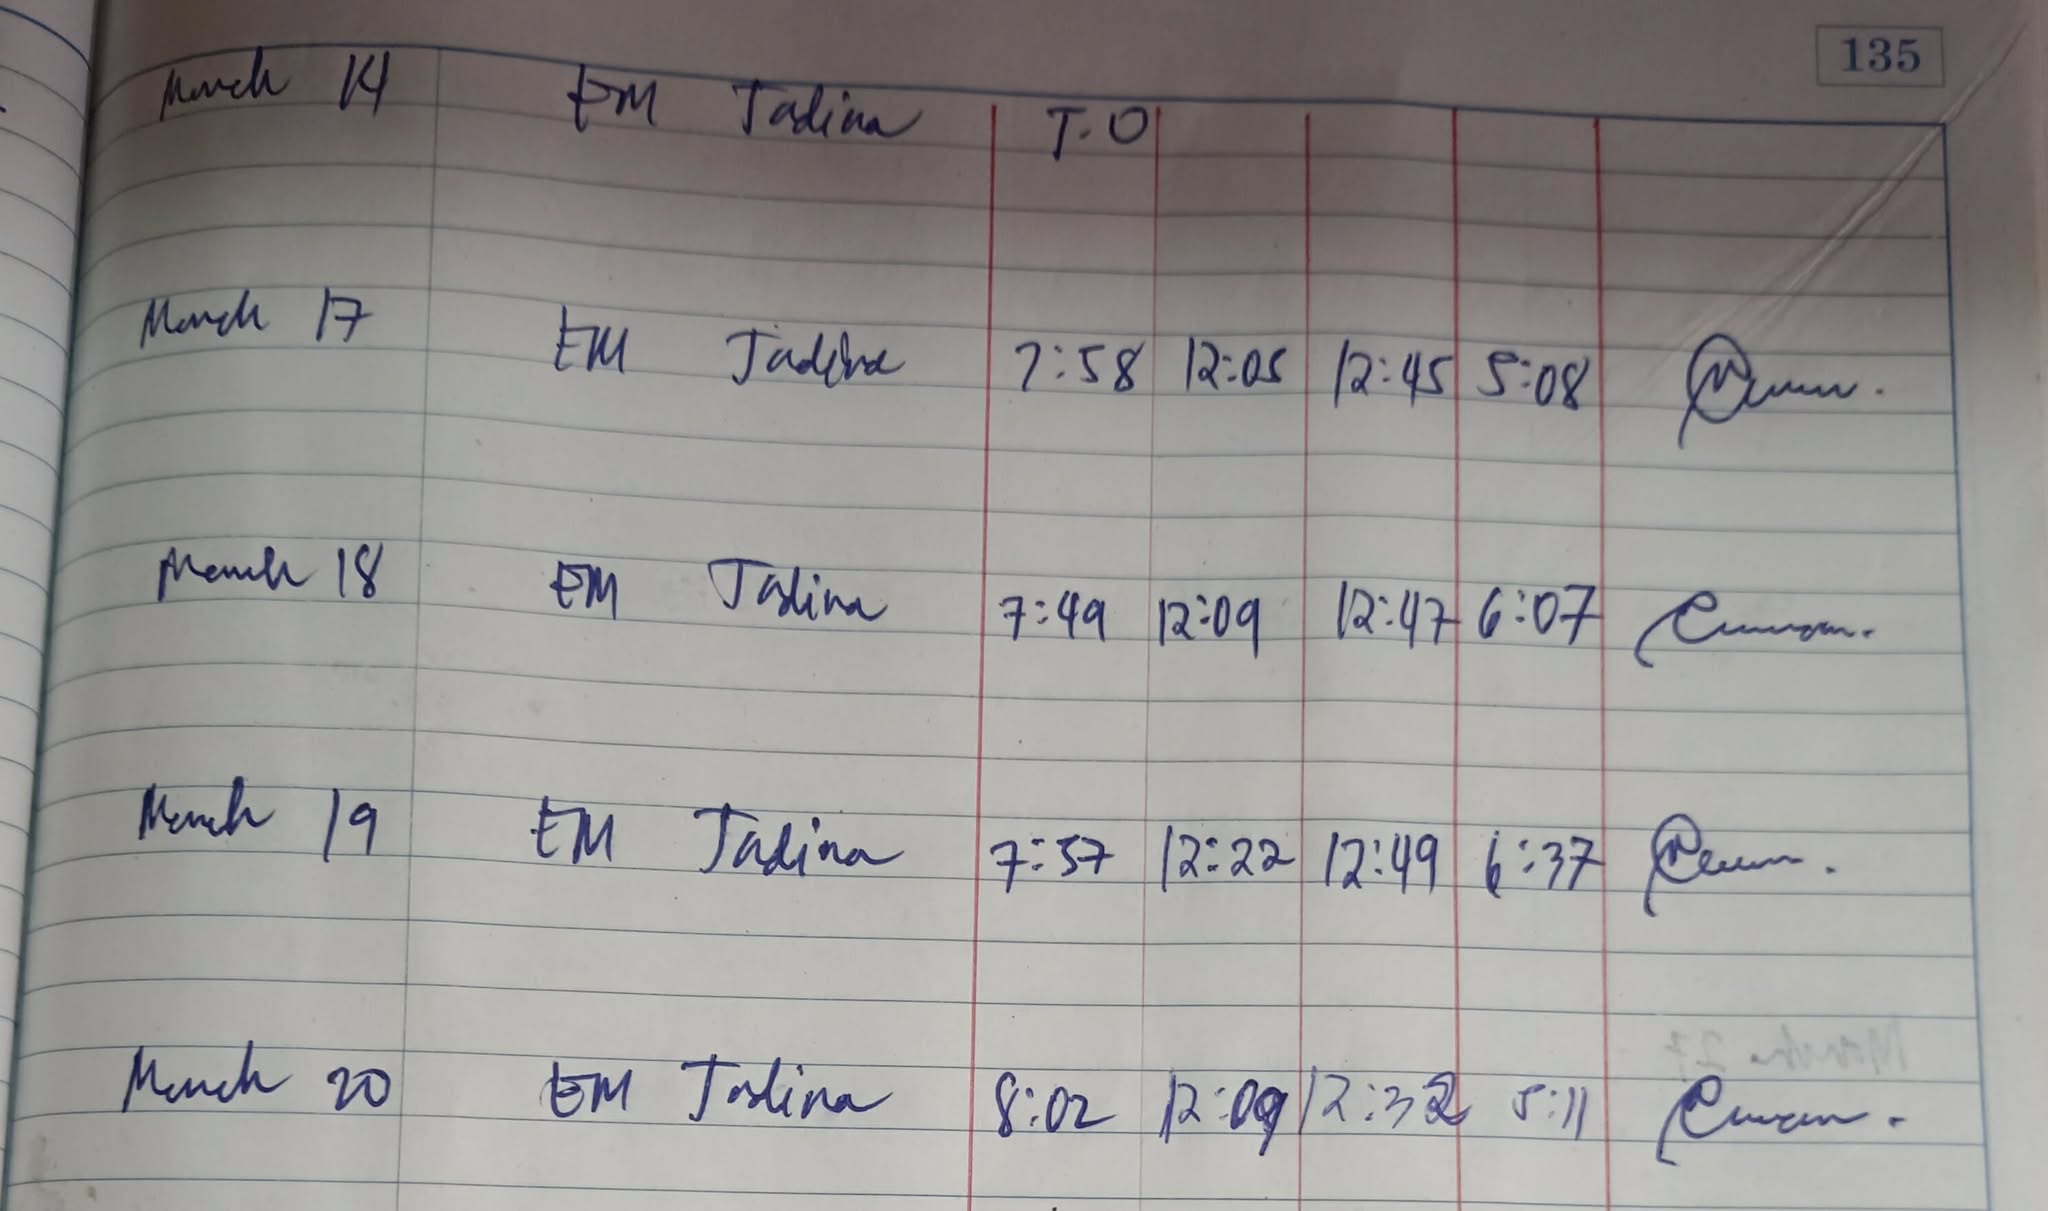 135
March 14 EM Jadina T.O
March 17 EM Jadina 7:58 12:05 12:45 5:08
March 18 EM Jadina 7:49 12:09 12:47 6:07
March 19 EM Jadina 7:57 12:22 12:49 6:37
March 20 EM Jadina 8:02 12:09 12:32 5:11